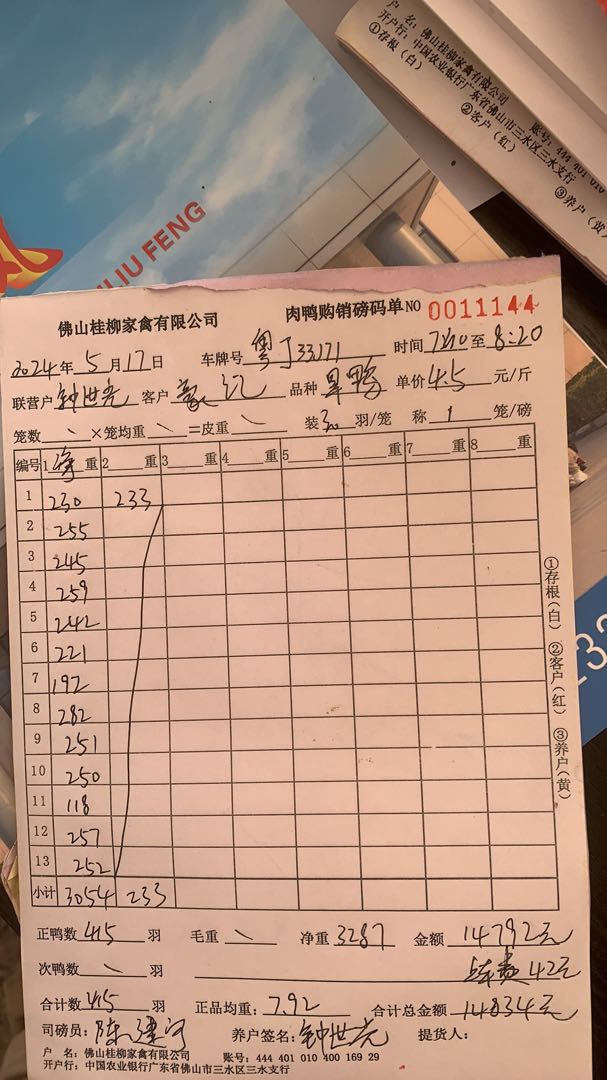 户 名：佛山桂柳家禽有限公司 账号：444 401 010
开户行：中国农业银行广东省佛山市三水区三水支行
①存根（白） ②客户（红） ③养户（黄）
LIU FENG
佛山桂柳家禽有限公司 肉鸭购销磅码单 NO 0011144
2024年5月17日 车牌号 粤J33171 时间 至 8:20
联营户 钟世亮 客户 豪记 品种 旱鸭 单价 4.5 元/斤
笼数 \ ×笼均重 \ =皮重 \ 装 羽/笼 称 1 笼/磅
编号 1 净 重 2 重 3 重 4 重 5 重 6 重 7 重 8 重
1 230 233
2 255
3 245
4 259
5 242
6 221
7 192
8 282
9 251
10 250
11 118
12 257
13 252
小计 3054 233
①存根（白） ②客户（红） ③养户（黄）
正鸭数 415 羽 毛重 \ 净重 3287 金额 14792元
次鸭数 \ 羽 42元
合计数 415 羽 正品均重：7.92 合计总金额 14834元
司磅员：陈建 养户签名：钟世亮 提货人：
户 名：佛山桂柳家禽有限公司 账号：444 401 010 400 169 29
开户行：中国农业银行广东省佛山市三水区三水支行